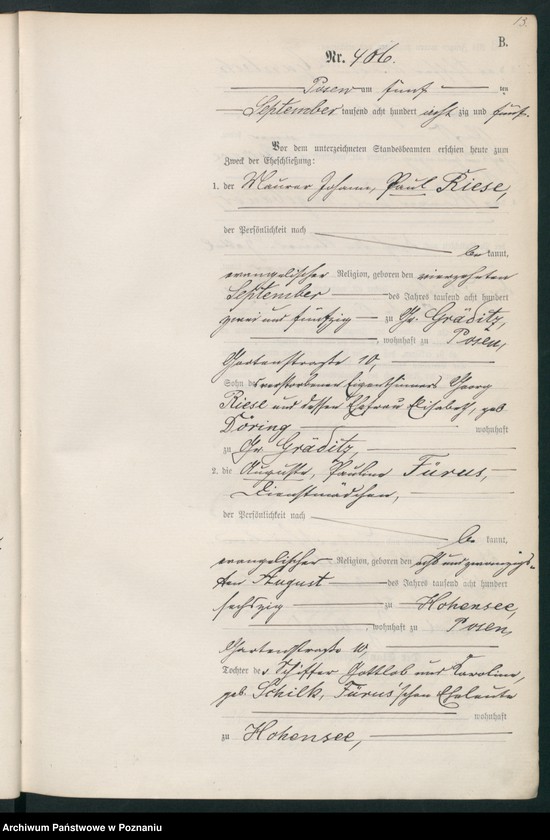 13.
B.
Nr. 406.
Posen am fünf ten
September tausend acht hundert acht zig und fünf.
Vor dem unterzeichneten Standesbeamten erschien heute zum
Zweck der Eheschließung:
1. der Maurer Johann, Paul Riese,
der Persönlichkeit nach
be kannt,
evangelischer Religion, geboren den vierzehnten
September des Jahres tausend acht hundert
zwei und fünfzig zu Gr. Gräditz,
, wohnhaft zu Posen,
Gartenstraße 10,
Sohn des verstorbenen Eigenthümers Georg
Riese und dessen Ehefrau Elisabeth, geb
Döring wohnhaft
zu Gr. Gräditz,
2. die Auguste, Pauline Fürus,
Dienstmädchen,
der Persönlichkeit nach
be kannt,
evangelischer Religion, geboren den acht und zwanzigs-
ten August des Jahres tausend acht hundert
sechszig zu Hohensee,
, wohnhaft zu Posen,
Gartenstraße 10,
Tochter der Schiffer Gottlob und Karoline,
geb. Schilk, Fürus'schen Eheleute
wohnhaft
zu Hohensee,
Archiwum Państwowe w Poznaniu
szukajwarchiwach.gov.pl